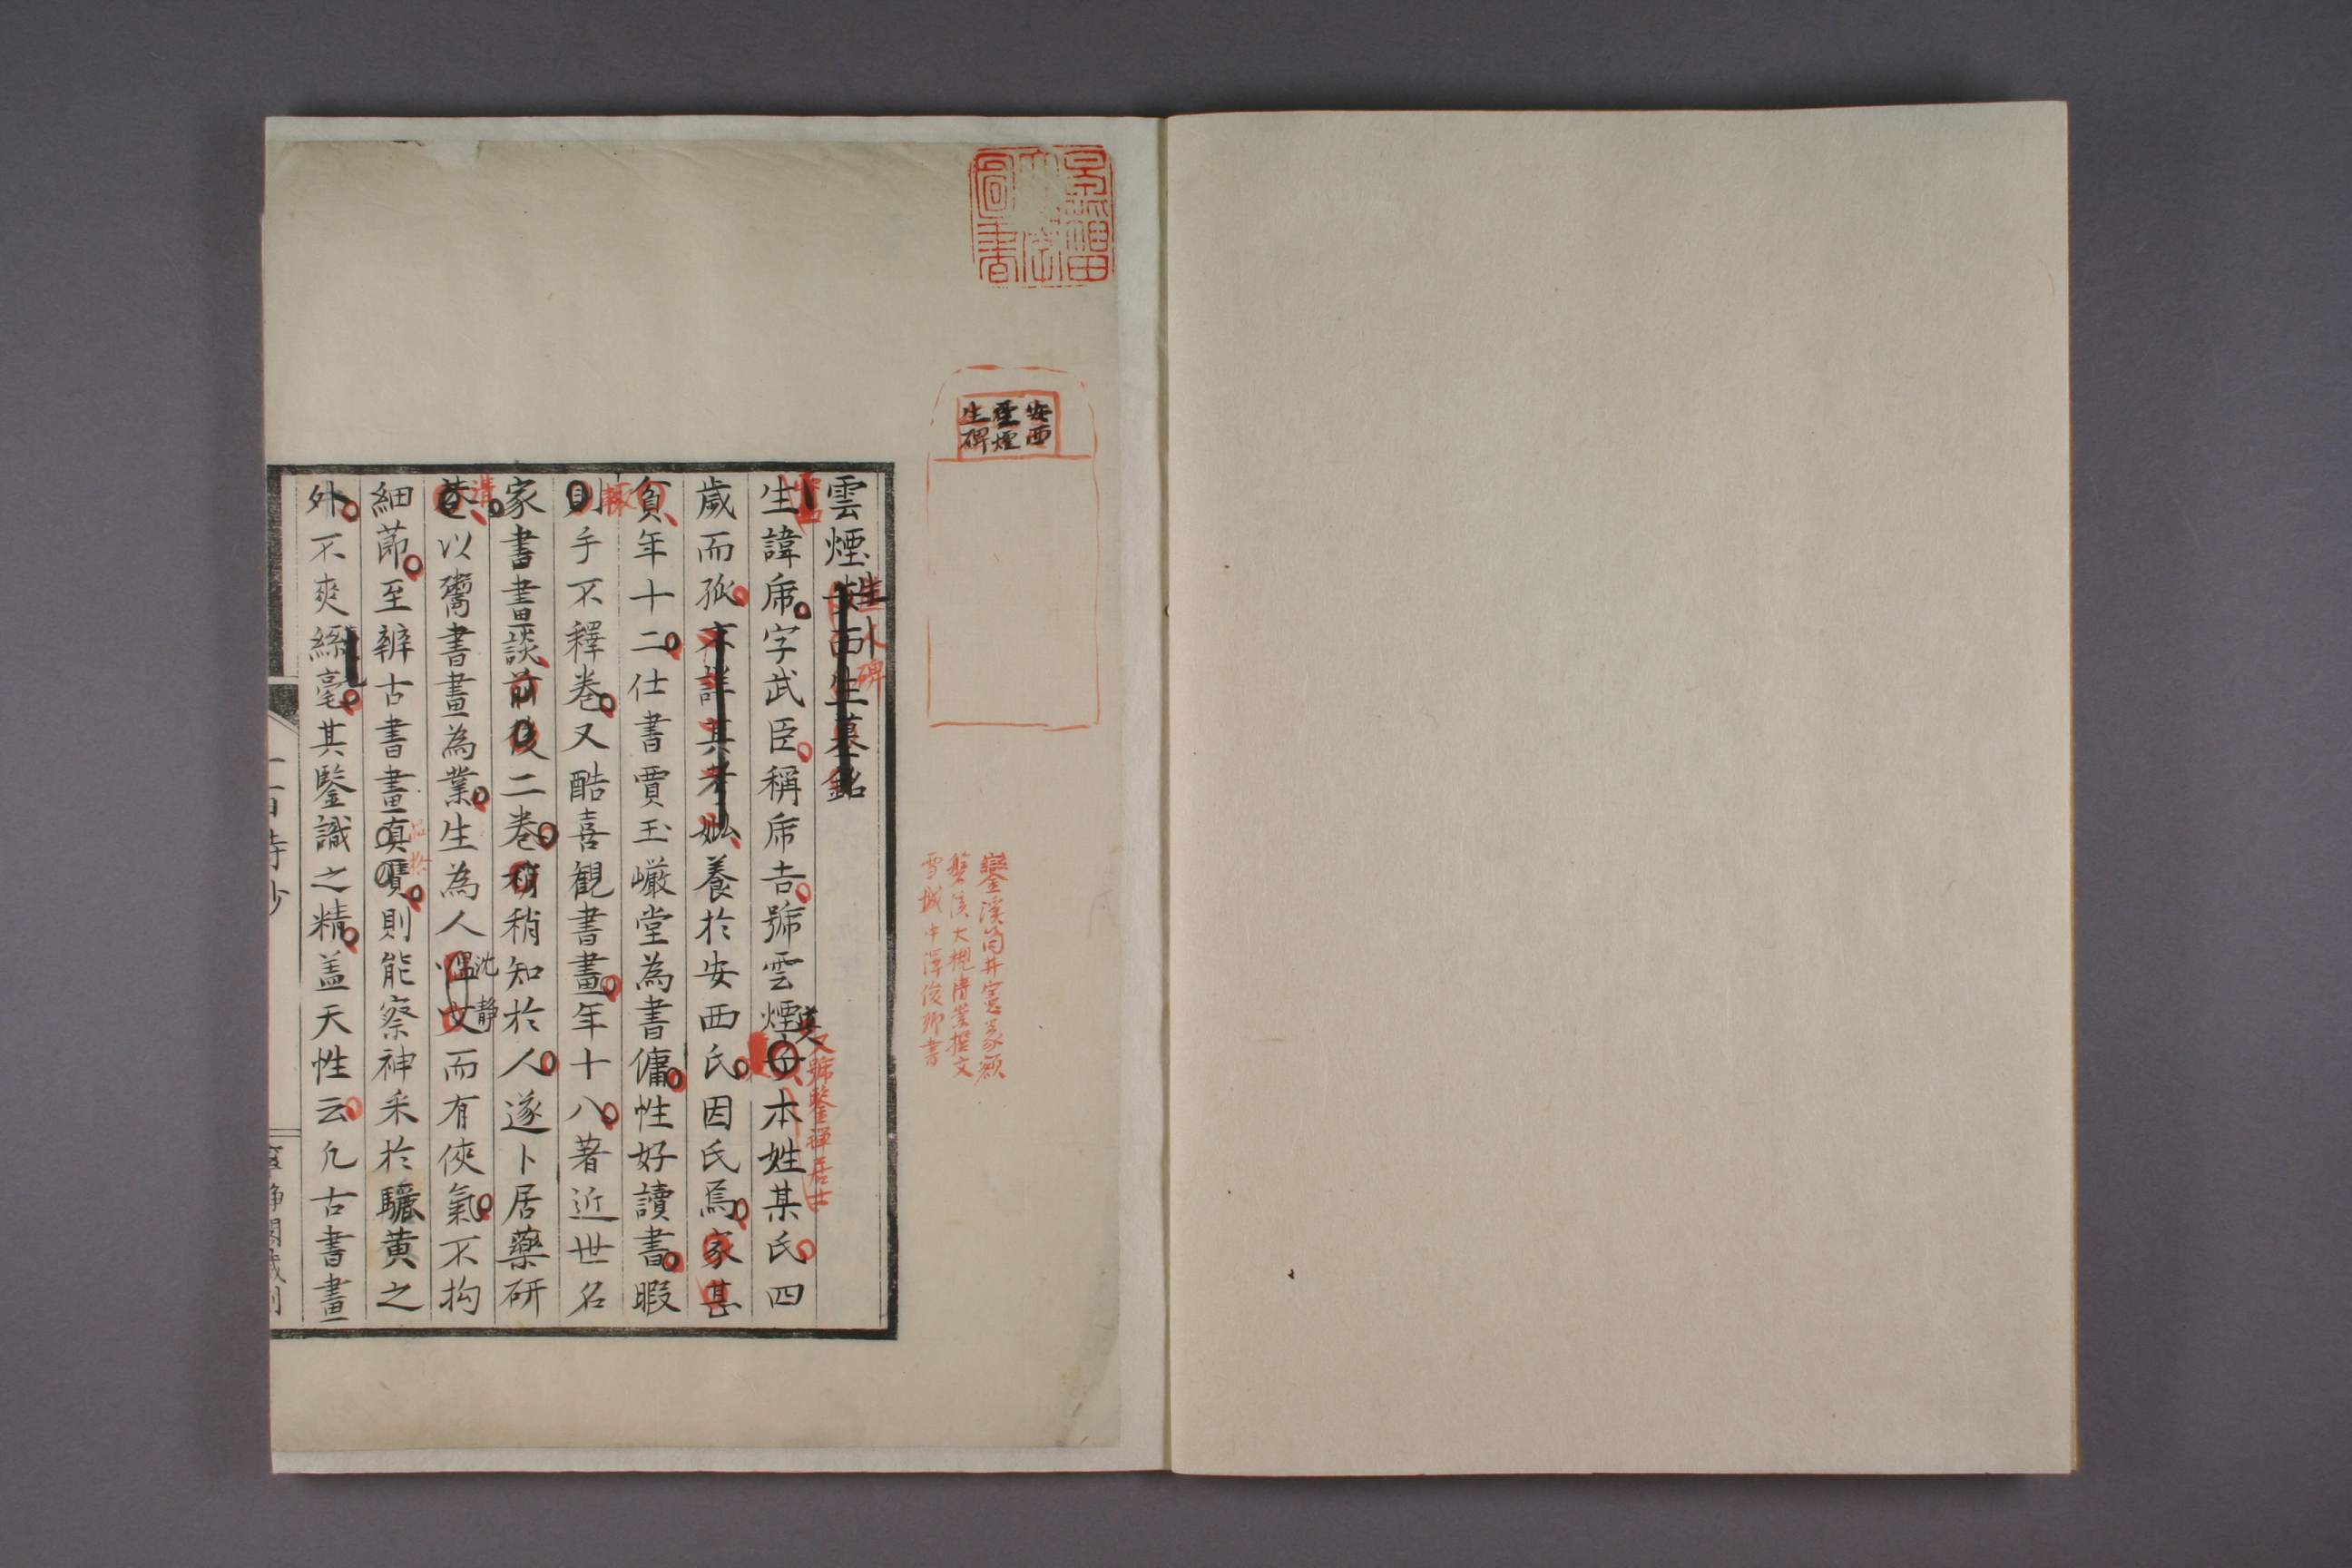 安西
雲煙
生碑
鑾溪筒井憲篆額
磐渓大槻清崇撰文
雪城中澤俊卿書
雲煙安西生墓銘
生碑
生諱㢲字武臣稱㢲吉號雲煙子本姓某氏四
又號鑒禪居士
歲而孤不詳其考妣養於安西氏因氏焉家甚
貧年十二仕書賈玉巖堂為書傭性好讀書暇
輙
則手不釋卷又酷喜觀書畫年十八著近世名
家書畫談前後二卷稍稍知於人遂卜居藥研
溝
巷以鬻書畫為業生為人温文而有俠氣不拘
沈靜
細莭至辨古書畫真贋則能察神采於驪黃之
外不爽絲毫其鑒識之精盖天性云凢古書畫